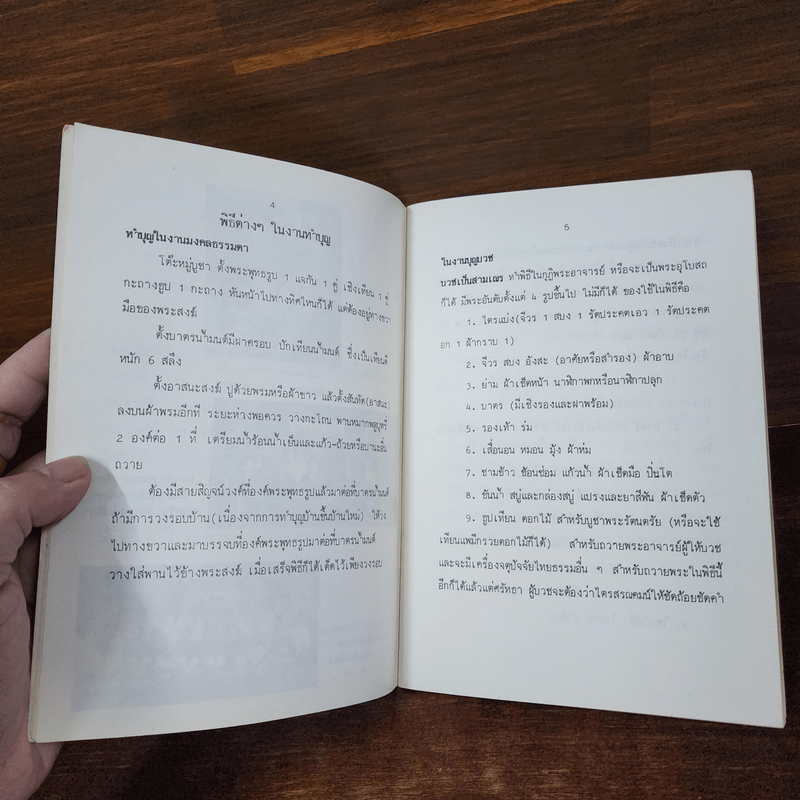 4
พิธีต่างๆ ในงานทำบุญ
ทำบุญในงานมงคลธรรมดา
โต๊ะหมู่บูชา ตั้งพระพุทธรูป 1 แจกัน 1 คู่ เชิงเทียน 1 คู่
กะถางธูป 1 กะถาง หันหน้าไปทางทิศไหนก็ได้ แต่ต้องอยู่ทางขวา
มือของพระสงฆ์
ตั้งบาตรน้ำมนต์มีฝาครอบ ปักเทียนน้ำมนต์ ซึ่งเป็นเทียนดี
หนัก 6 สลึง
ตั้งอาสนะสงฆ์ ปูด้วยพรมหรือผ้าขาว แล้วตั้งสันถัด(อาสนะ)
ลงบนผ้าพรมอีกที ระยะห่างพอควร วางกะโถน พานหมากพลูบุหรี่
2 องค์ต่อ 1 ที่ เตรียมน้ำร้อนน้ำเย็นและแก้ว-ถ้วยหรือปานะอื่น
ถวาย
ต้องมีสายสิญจน์วงค์ที่องค์พระพุทธรูปแล้วมาต่อที่บาตรน้ำมนต์
ถ้ามีการวงรอบบ้าน(เนื่องจากการทำบุญบ้านขึ้นบ้านใหม่) ให้วง
ไปทางขวาและมาบรรจบที่องค์พระพุทธรูปมาต่อที่บาตรน้ำมนต์
วางใส่พานไว้ข้างพระสงฆ์ เมื่อเสร็จพิธีก็ได้เด็ดไว้เพียงวงรอบ
5
ในงานบุญบวช
บวชเป็นสามเณร ทำพิธีในกุฏิพระอาจารย์ หรือจะเป็นพระอุโบสถ
ก็ได้ มีพระอันดับตั้งแต่ 4 รูปขึ้นไป ไม่มีก็ได้ ของใช้ในพิธีคือ
1. ไตรแบ่ง(จีวร 1 สบง 1 รัดประคตเอว 1 รัดประคต
อก 1 ผ้ากราบ 1)
2. จีวร สบง อังสะ (อาศัยหรือสำรอง) ผ้าอาบ
3. ย่าม ผ้าเช็ดหน้า นาฬิกาพกหรือนาฬิกาปลุก
4. บาตร (มีเชิงรองและฝาพร้อม)
5. รองเท้า ร่ม
6. เสื่อนอน หมอน มุ้ง ผ้าห่ม
7. ชามข้าว ช้อนซ่อม แก้วน้ำ ผ้าเช็ดมือ ปิ่นโต
8. ขันน้ำ สบู่และกล่องสบู่ แปรงและยาสีฟัน ผ้าเช็ดตัว
9. ธูปเทียน ดอกไม้ สำหรับบูชาพระรัตนตรัย (หรือจะใช้
เทียนแพมีกรวยดอกไม้ก็ได้) สำหรับถวายพระอาจารย์ผู้ให้บวช
และจะมีเครื่องจตุปัจจัยไทยธรรมอื่น ๆ สำหรับถวายพระในพิธีนี้
อีกก็ได้แล้วแต่ศรัทธา ผู้บวชจะต้องว่าไตรสรณคมน์ให้ชัดถ้อยชัดคำ